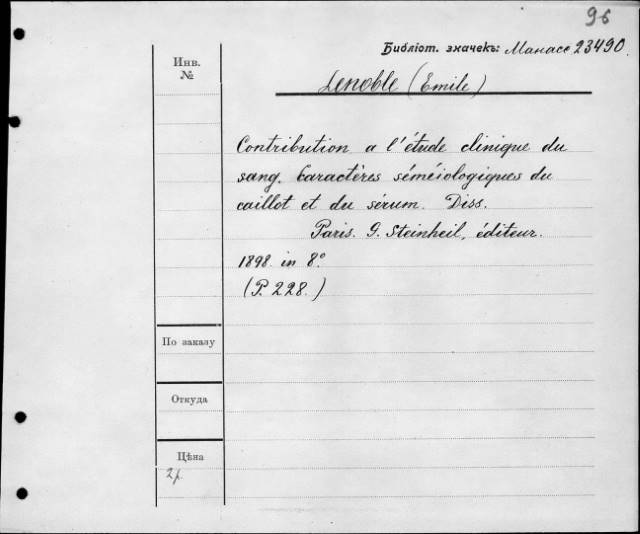 96
Библіот. значекъ: Манасс 23490.
Инв.
№
Lenoble (Emile)
Contribution a l'étude clinique du
sang. Caractères séméiologiques du
caillot et du sérum. Diss.
Paris. G. Steinheil, éditeur.
1898. in 8°.
(P. 228.)
По заказу
Откуда
Цѣна
2р.